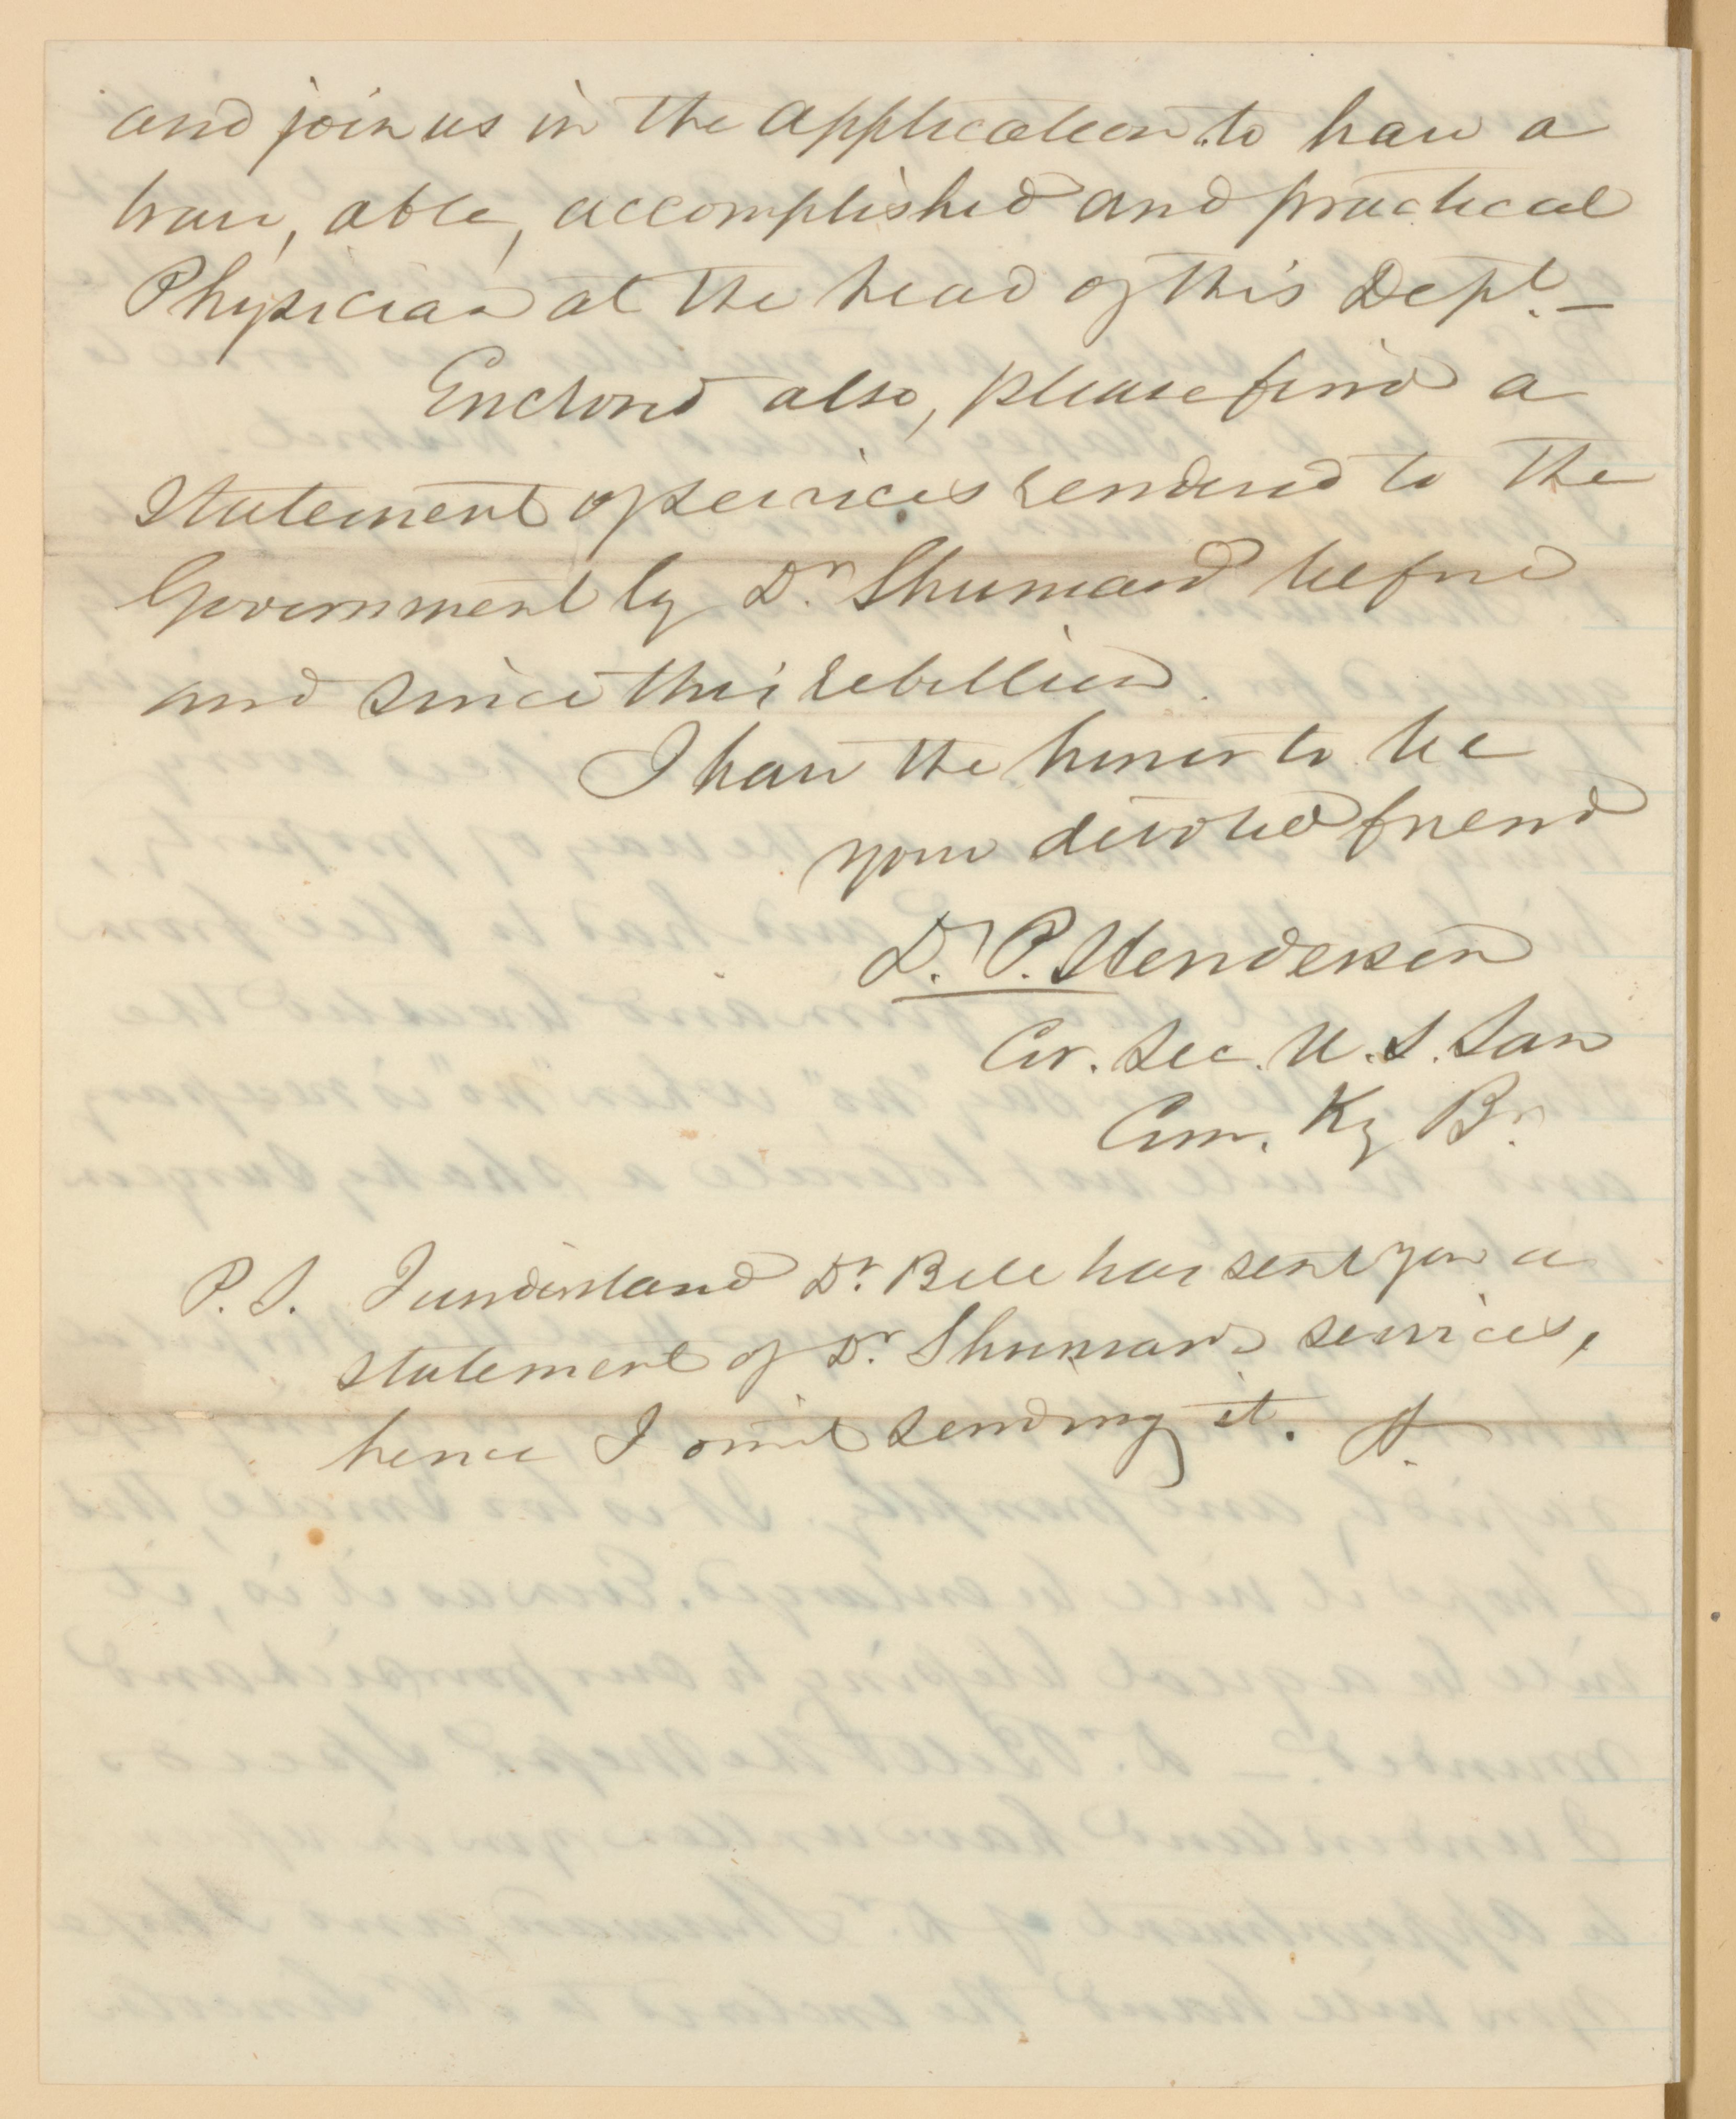 and join us in the application to have a
brave, able, accomplished and practical
Physician at the head of this Dept. —
Enclosed also, please find a
Statement of services rendered to the
Government by Dr. Shumard before
and since this rebellion.
I have the honor to be
your devoted friend
D. P. Henderson
Cor. Sec. U. S. San
Com. Ky Br.
P. S. I understand Dr. Bell has sent you a
statement of Dr. Shumards services,
hence I omit sending it. H.